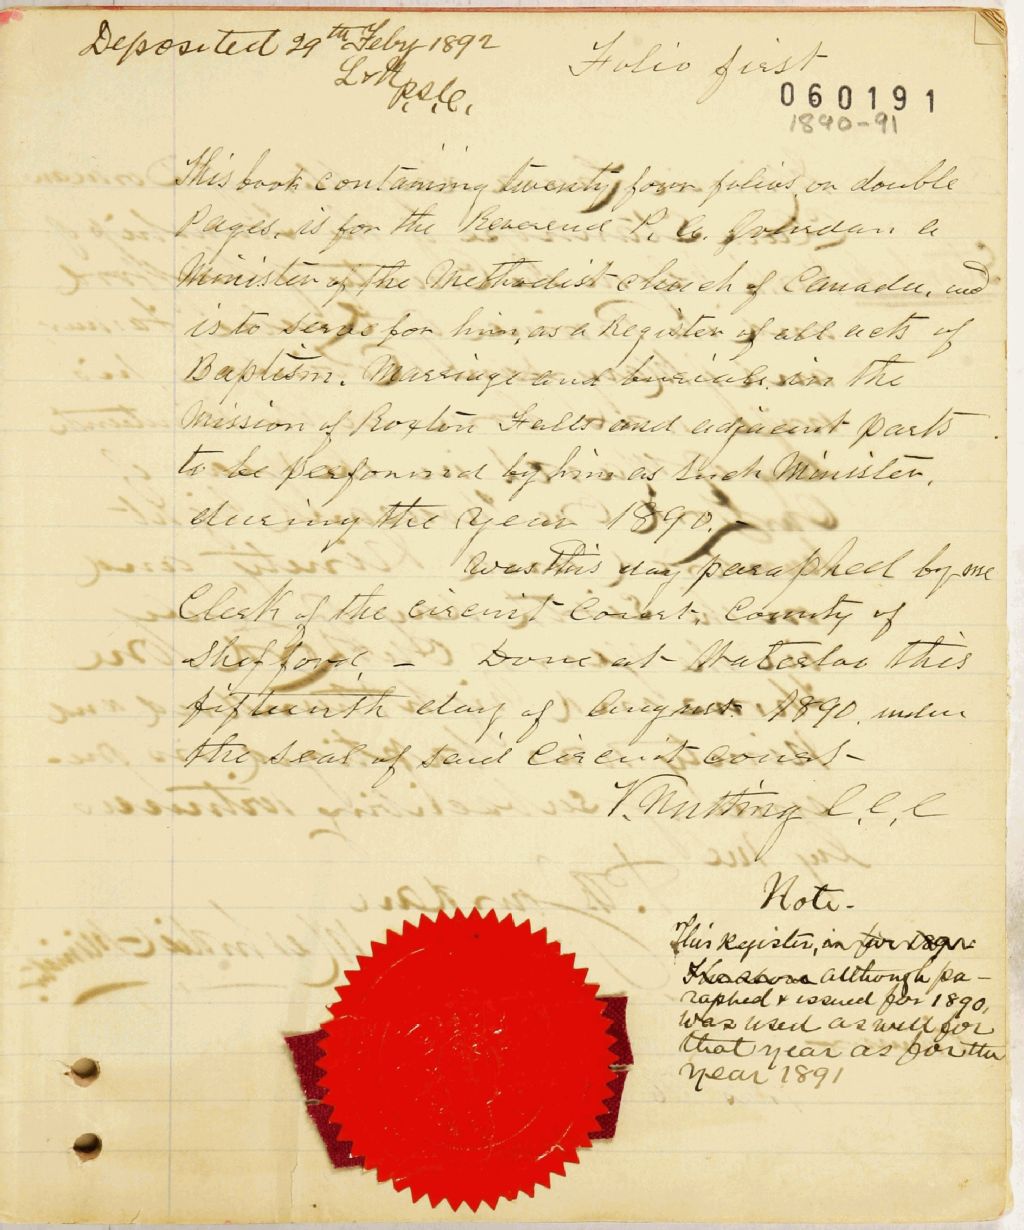 Deposited 29th Feby 1892
L & H
P.S.C.
Folio first
060191
1890-91
This book containing twenty four folios or double
Pages, is for the Reverend P. C. a
Minister of the Methodist church of Canada, and
is to serve for him, as a Register of all acts of
Baptism, Marriage and burials, in the
Mission of Roxton Falls and adjacent parts
to be performed by him as such Minister,
during the year 1890. -
Was this day paraphed by me
Clerk of the Circuit Court, County of
Shefford, - Done at Waterloo this
fifteenth day of August 1890, under
the seal of said Circuit Court -
V. Nutting C.C.C
Note.
This Register, in for 1891
although pa-
raphed & issued for 1890,
was used as well for
that year as for the
year 1891